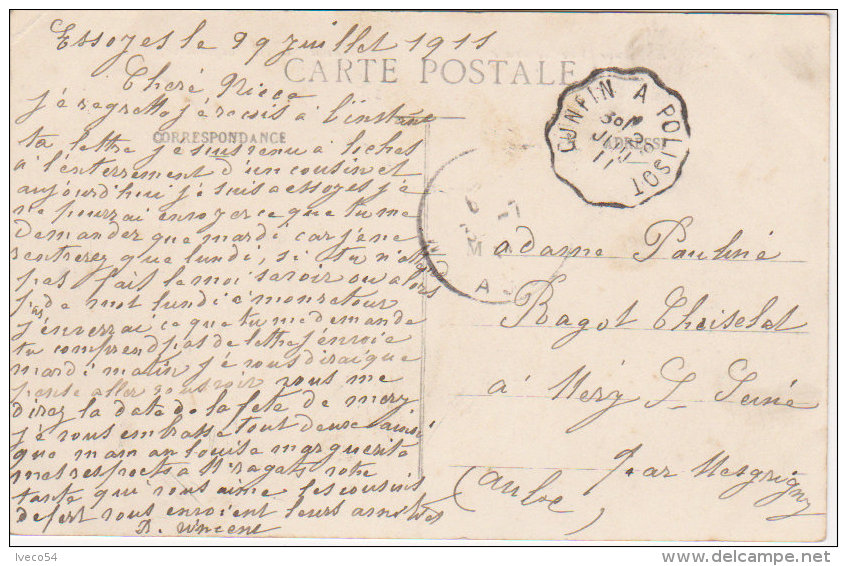 Essoyes le 29 juillet 1911
CARTE POSTALE
Cheré Niece
CORRESPONDANCE
ADRESSE
je regrette je recois à l'instant
ta lettre je suis venu a loches
a l'enterrement d'un cousin et
aujourd'hui je suis a essoyes je
ne pourrai envoyer ce que tu me
demander que mardi car je ne
rentrerez que lundi, si tu n'
pas fait le moi savoir ou alors
de mot lundi a mon retour
j'enverrai ce que tu me demande
tu comprend pas de lettre j'envoie
mardi matin je vous dirai que
pense aller vous voir vous me
direz la date de la fete de mery
je vous embrasse tout deux ainsi
que maman louise marguerite
mes respects a Mr ragot votre
tante qui vous aime les cousins
defert vous envoient leurs amitiés
D. Vincent
CUNFIN A POLISOT
30
JUIL
11
M
A
adame Pauliné
Ragot Choiselat
à Mery S- Seine
par Mesgrigny
(aube)
Iveco54
www.delcampe.net